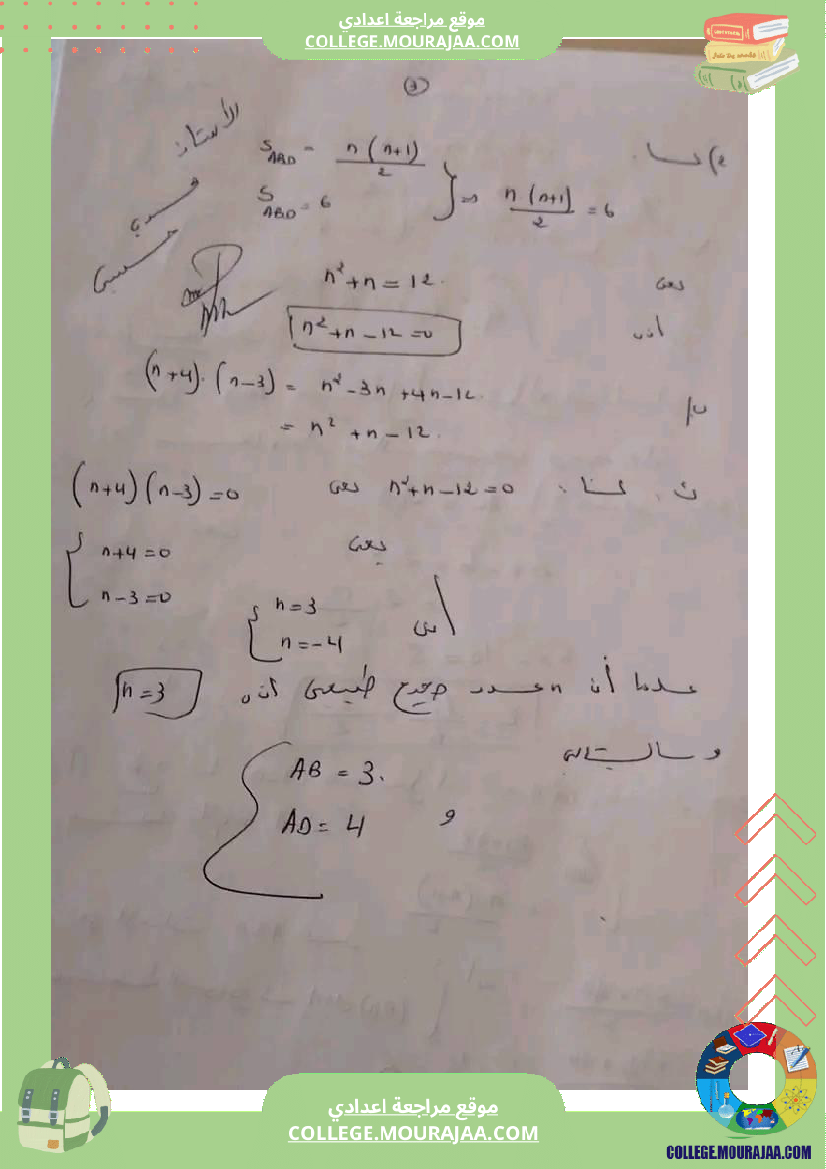 موقع مراجعة اعدادي
COLLEGE.MOURAJAA.COM
③
الأستاذ
2) لنا
S_ABD = n(n+1)/2
S_ABD = 6
} ⇒ n(n+1)/2 = 6
يعني n²+n = 12.
اذن n²+n-12=0
(n+4).(n-3) = n²-3n+4n-12
= n²+n-12.
لنا: n²+n-12=0 يعني (n+4)(n-3)=0
يعني { n+4=0
n-3=0
أي { n=3
n=-4
علما أن n عدد صحيح طبيعي اذن n=3
و بالتالي
{ AB = 3.
و AD = 4
موقع مراجعة اعدادي
COLLEGE.MOURAJAA.COM
COLLEGE.MOURAJAA.COM